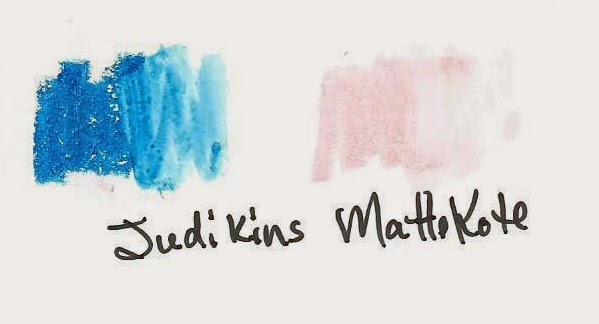 JudiKins MatteKote